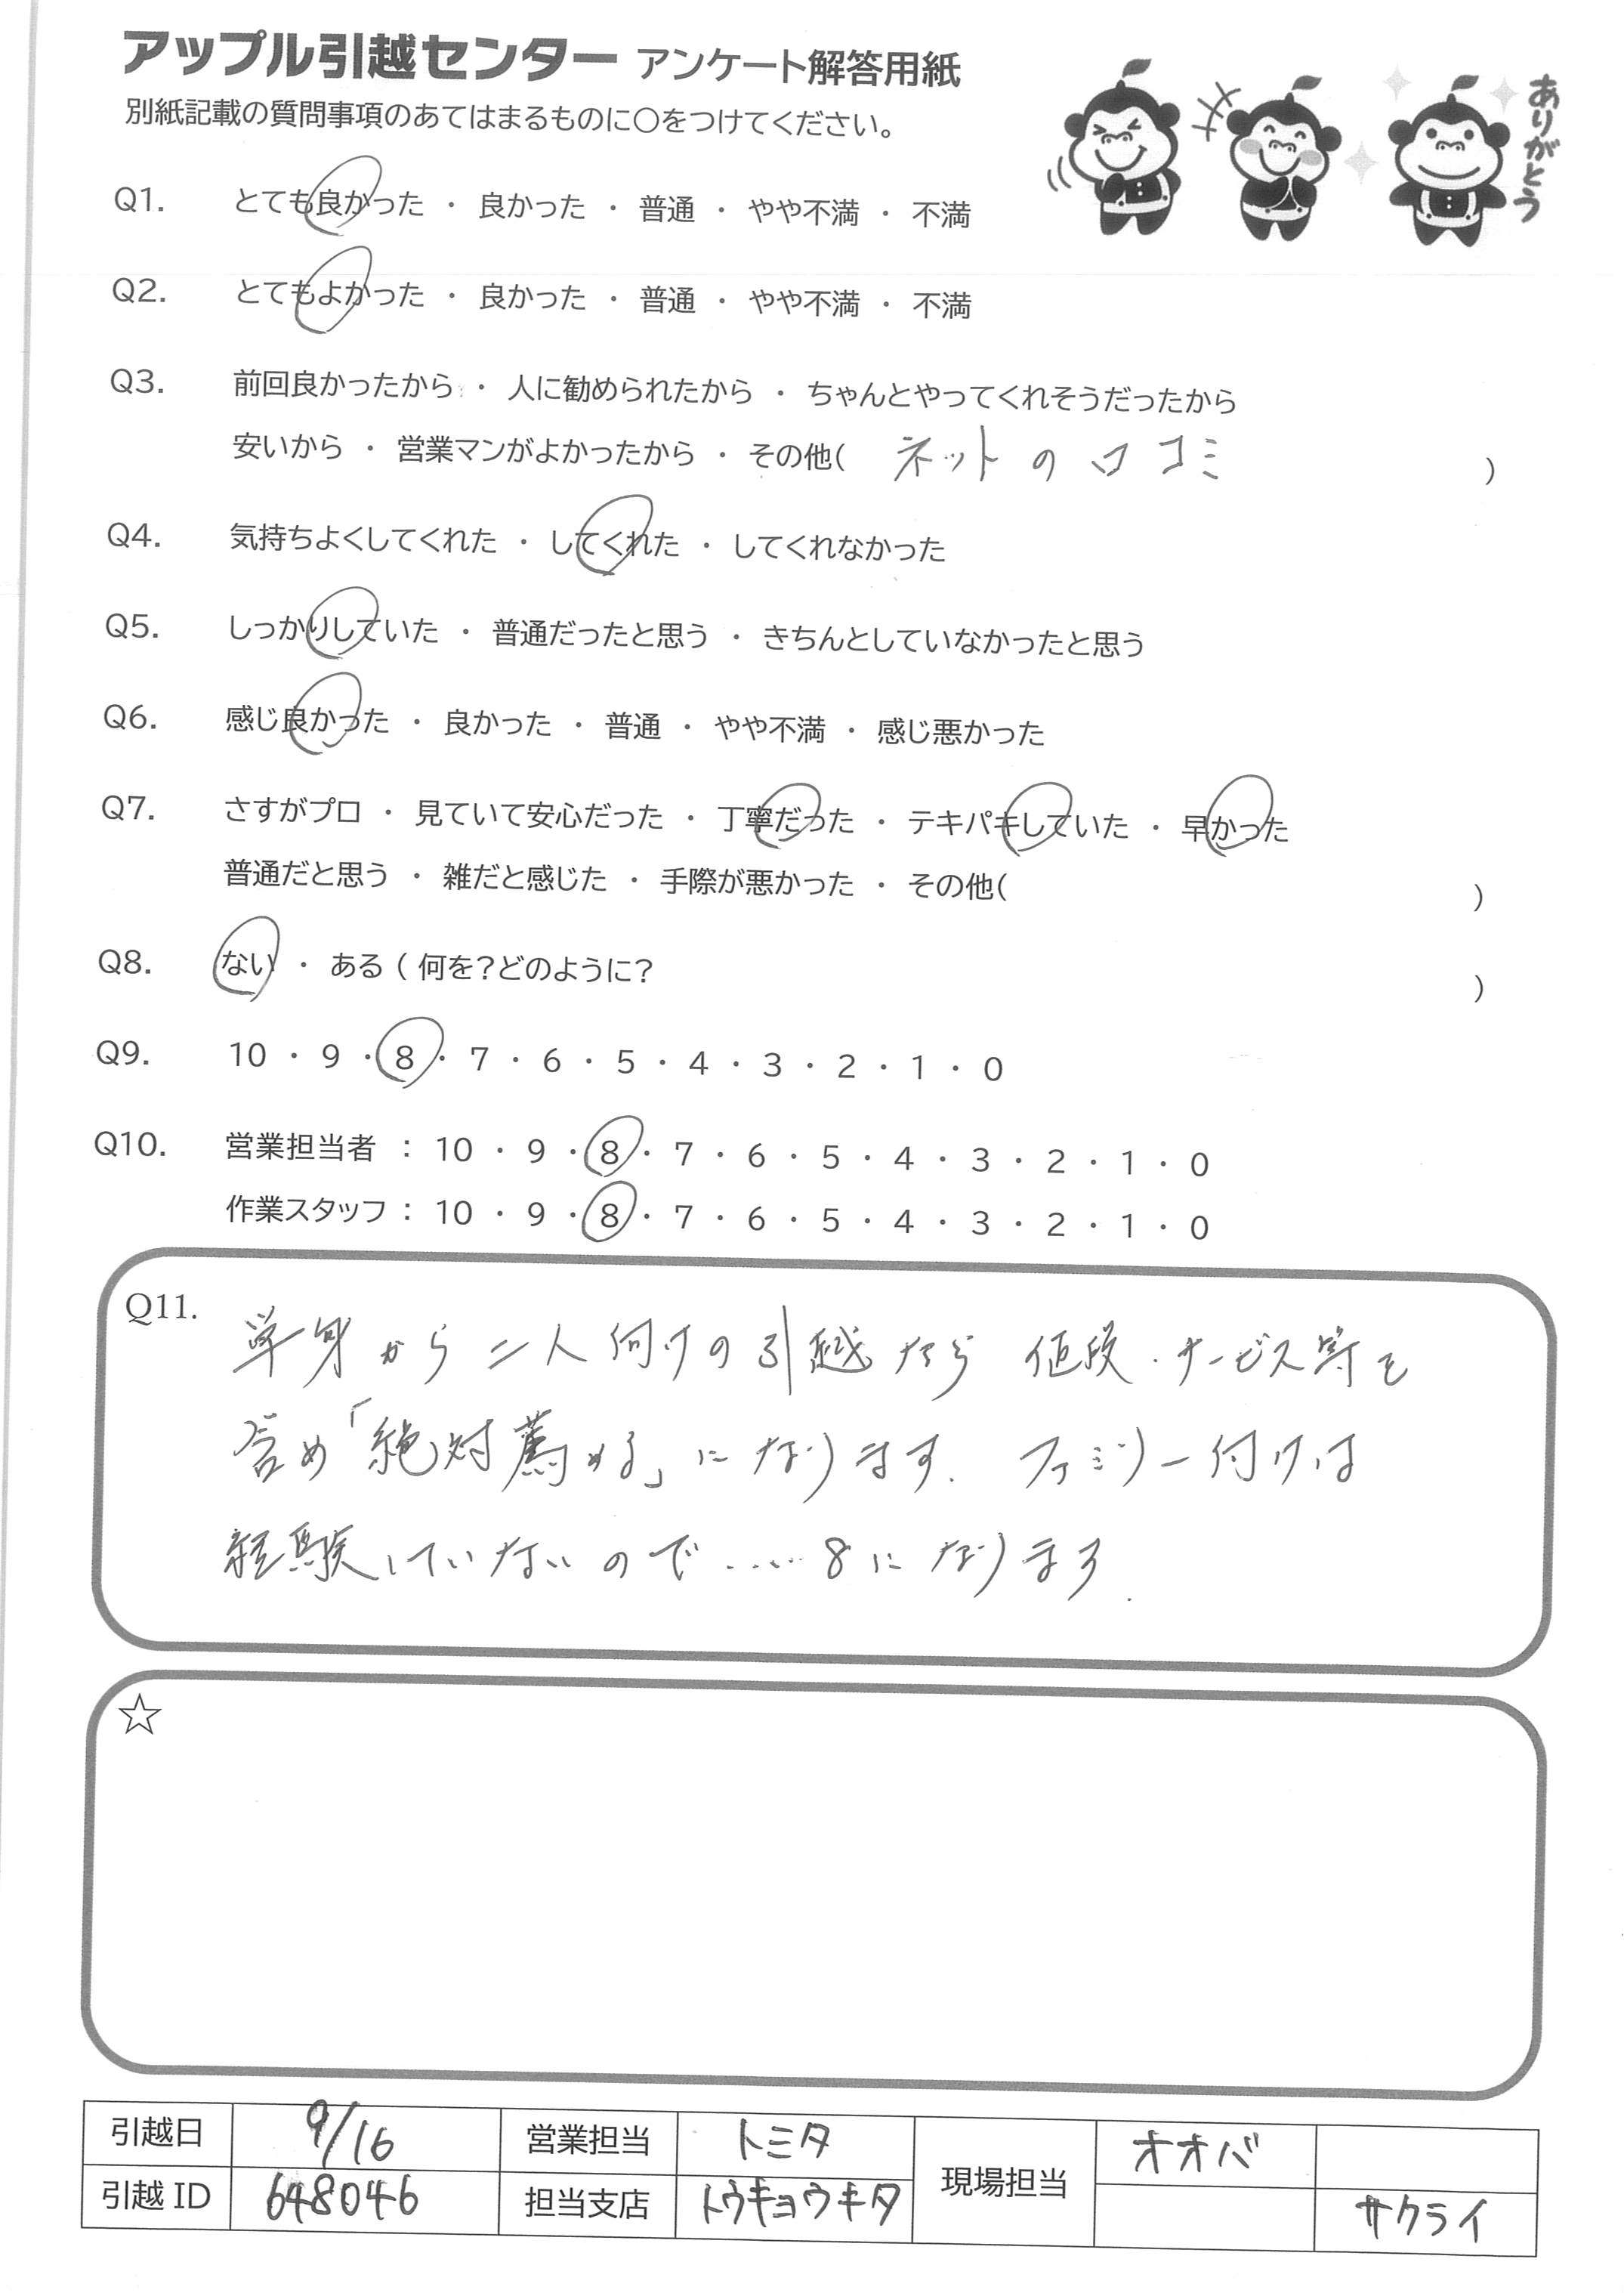 アップル引越センター アンケート解答用紙
別紙記載の質問事項のあてはまるものに〇をつけてください。
ありがとう
Q1. とても良かった ・ 良かった ・ 普通 ・ やや不満 ・ 不満
Q2. とてもよかった ・ 良かった ・ 普通 ・ やや不満 ・ 不満
Q3. 前回良かったから ・ 人に勧められたから ・ ちゃんとやってくれそうだったから
安いから ・ 営業マンがよかったから ・ その他( ネットの口コミ )
Q4. 気持ちよくしてくれた ・ してくれた ・ してくれなかった
Q5. しっかりしていた ・ 普通だったと思う ・ きちんとしていなかったと思う
Q6. 感じ良かった ・ 良かった ・ 普通 ・ やや不満 ・ 感じ悪かった
Q7. さすがプロ ・ 見ていて安心だった ・ 丁寧だった ・ テキパキしていた ・ 早かった
普通だと思う ・ 雑だと感じた ・ 手際が悪かった ・ その他( )
Q8. ない ・ ある ( 何を?どのように? )
Q9. 10 ・ 9 ・ 8 ・ 7 ・ 6 ・ 5 ・ 4 ・ 3 ・ 2 ・ 1 ・ 0
Q10. 営業担当者 : 10 ・ 9 ・ 8 ・ 7 ・ 6 ・ 5 ・ 4 ・ 3 ・ 2 ・ 1 ・ 0
作業スタッフ : 10 ・ 9 ・ 8 ・ 7 ・ 6 ・ 5 ・ 4 ・ 3 ・ 2 ・ 1 ・ 0
Q11. 単身から二人向けの引越なら 値段・サービス等を
含め「絶対薦める」になります. ファミリー向けは
経験していないので……8になります.
☆
引越日 9/16 営業担当 トミタ 現場担当 オオバ
引越 ID 648046 担当支店 トウキョウキタ サクライ